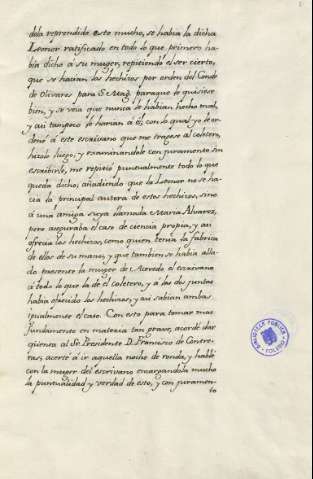 dola reprendido esto mucho, se habia la dicha
Leonor ratificado en todo lo que primero ha-
bia dicho à su muger, repitiendo el ser cierto,
que se hacian los hechizos por orden del Conde
de Olivares para S. Mag.d paraque lo quisiese
bien, y se veia que nunca se habian hecho mal,
y asi tampoco lo harian à él; con lo qual yo or-
dené à este escrivano que me tragese al coletero,
hizolo luego, y examinandole con juramento sin
escribirlo, me repitió puntualmente todo lo que
queda dicho, añadiendo que la Leonor no se ha-
cia la principal autora de estos hechizos, sino
à una amiga suya llamada Maria Alvarez,
pero aseguraba el caso de ciencia propia, y asi
ofrecia los hechizos, como quien tenia la fabrica
de ellos de su mano, y que tambien se habia alla-
do presente la muger de Acevedo el escrivano
à todo lo que la de el coletero, y à las dos juntas
habia ofrecido los hechizos, y asi sabian ambas
igualmente el caso. Con esto para tomar mas
fundamento en materia tan grave, acordé dar
quenta al Sr. Presidente D. Francisco de Contre-
ras, acerté à ir aquella noche de ronda, y hablé
con la muger del escrivano encargandola mucho
la puntualidad y verdad de esto, y con juramen-
to
BIBLIOTECA PUBLICA
TOLEDO